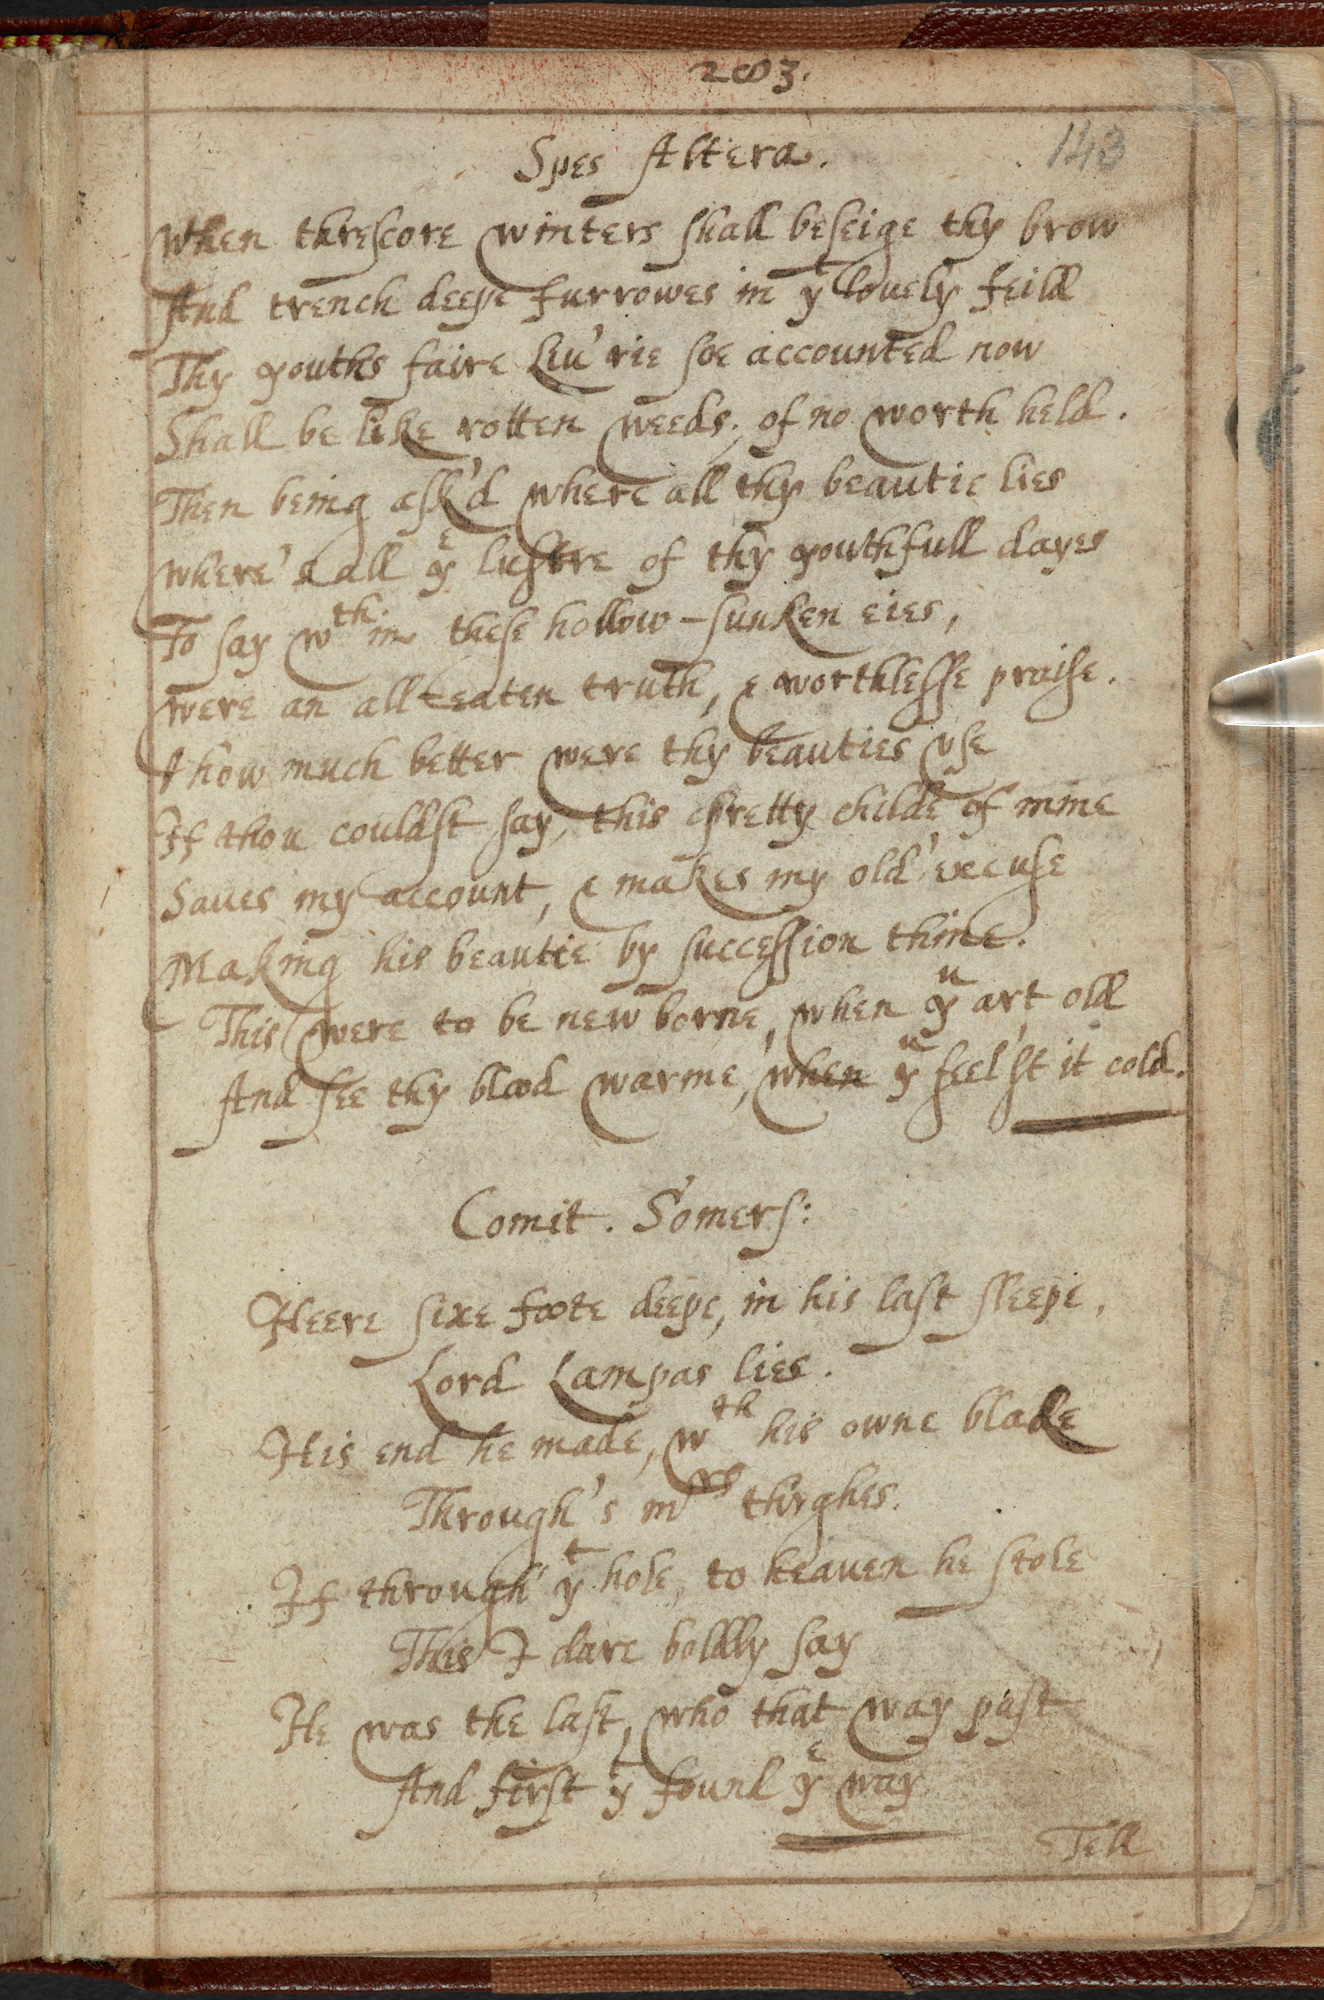 203.
143
Spes Altera.
When threscore winters shall beseige thy brow
And trench deepe furrowes in yt louely feild
Thy youths faire Liu'rie soe accounted now
Shall be like rotten weeds, of no worth held.
Then being ask'd where all thy beautie lies
Where's all ye lustre of thy youthfull dayes
To say wthin these hollow-sunken eies,
were an all-eaten truth, & worthlesse praise.
O how much better were thy beauties vse
If thou couldst say, this pretty childe of mine
Saues my account, & makes my old excuse
Making his beautie by succession thine.
This were to be new borne, when yu art old
And see thy blood warme, when yu feel'st it cold.
Comit. Somers:
Heere sixe foote deepe, in his last sleepe,
Lord Lampas lies.
His end he made, wth his owne blade
Through's mrs thighes.
If through yt hole, to heauen he stole
This I dare boldly say
He was the last, who that way past
And first yt found ye way
Tell